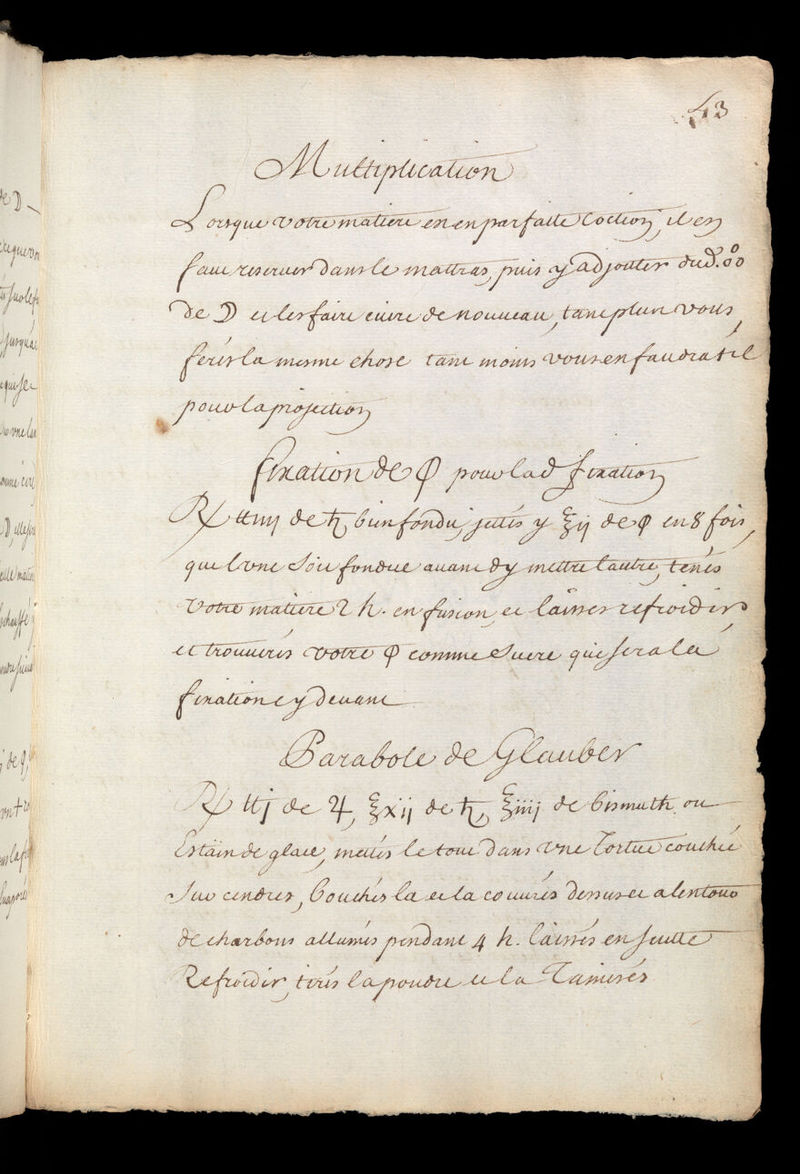 43
Multiplication
Lorsque votre matiere en en parfaitte Coction, il en
faut reserver dans le mattras, puis y adjouter du
de ☽ et les faire cuire de nouveau, tant plus vous
ferés la mesme chose tant moins vous en faudrat il
pour la projection
fixation de pour lad fixation
℞ ♄ bien fondu, jettés y ℥ij de en 8 fois,
que l'une soit fondue avant dy mettre l'autre, tenés
votre matiere 2 h. en fusion, et laisses refroidir,
et trouverés votre comme sucre qui sera la
fixation cy devant
Parabole de Glauber
℞ ℔j de ♃, ℥xij de ♄, ℥iiij de bismuth ou
Estain de glace, mettés le tout dans une Tortue couchée
sur cendres, bouchés la et la couvrés dessus et alentour
de charbons allumés pendant 4 h. laissés ensuitte
Refroidir, tirés la poudre et la Tamisés